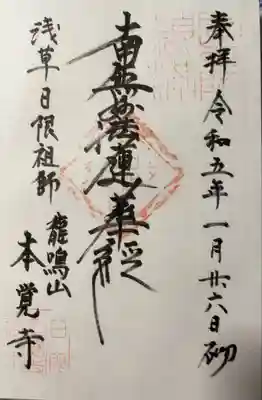 奉拝 令和五年一月廿六日 砌
南無妙法蓮華經
浅草 日限祖師
龍鳴山
本覚寺